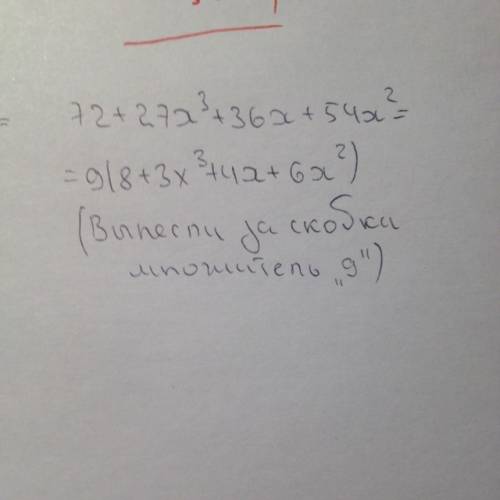 = 72+27x³+36x+54x²=
=9(8+3x³+4x+6x²)
(Вынесли за скобки
множитель „9")